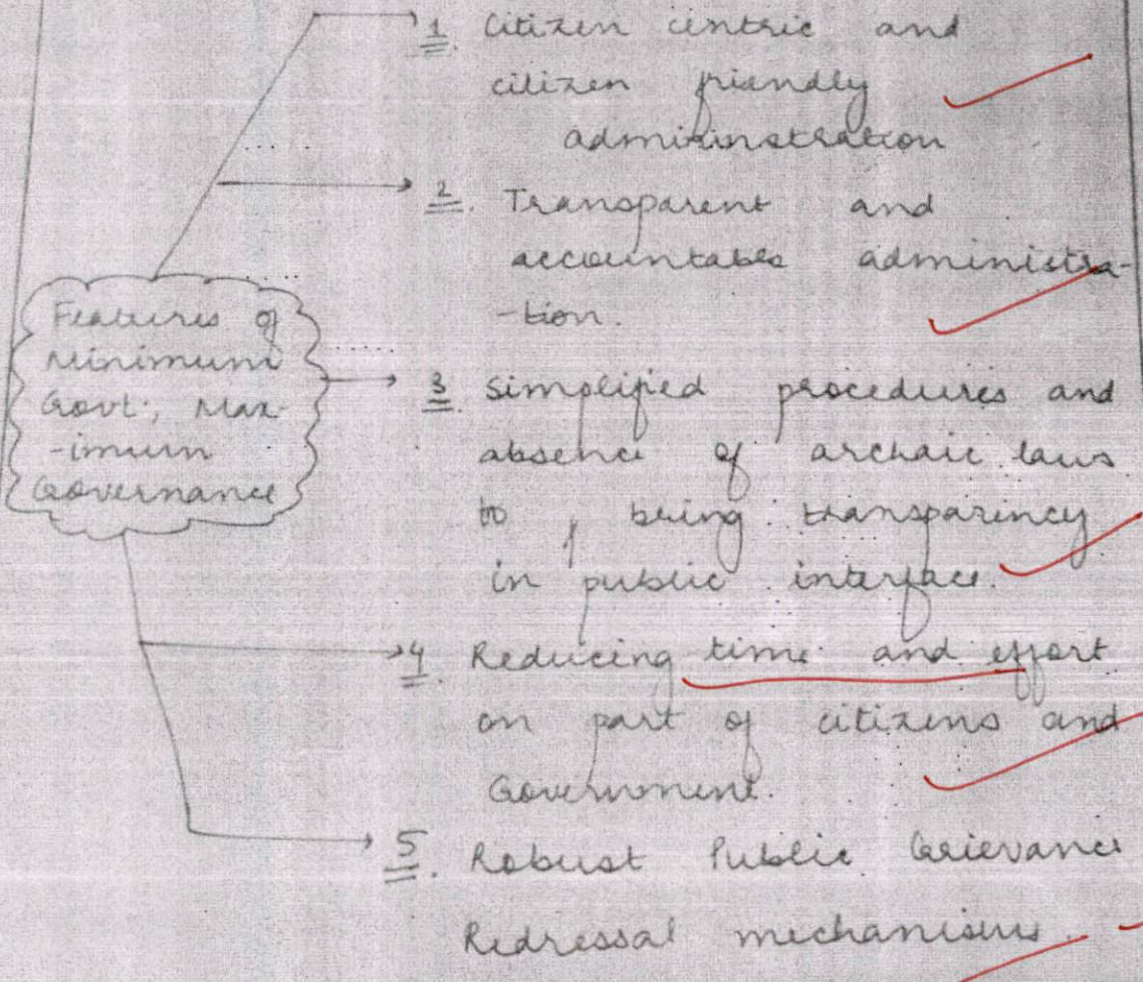 Features of
Minimum
Govt; Max-
-imum
Governance
1. Citizen centric and
citizen friendly
admininstration
2. Transparent and
accountable administra-
-tion.
3 Simplified procedures and
absence of archaic laws
to bring transparency
in public interface.
4. Reducing time and effort
on part of citizens and
Government.
5. Robust Public Grievance
Redressal mechanisms.